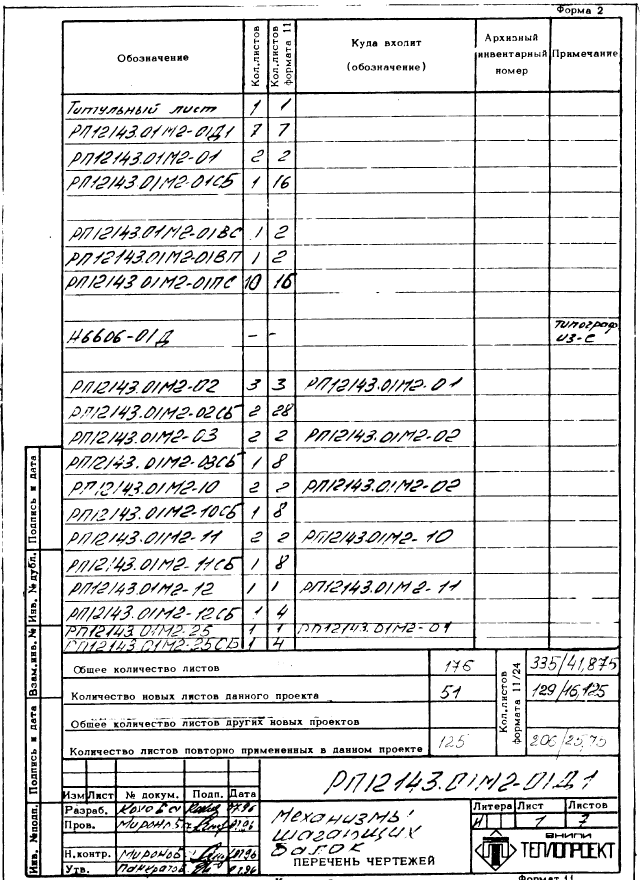 Форма 2
Обозначение Кол.листов Кол.листов формата 11 Куда входит (обозначение) Архивный инвентарный номер Примечание
Титульный лист 1 1
РП12143.01М2-01Д1 7 7
РП12143.01М2-01 2 2
РП12143.01М2-01СБ 1 16
РП12143.01М2-01ВС 1 2
РП12143.01М2-01ВП 1 2
РП12143.01М2-01ПС 10 16
Н6606-01Д - - типограф. из-е
РП12143.01М2-02 3 3 РП12143.01М2-01
РП12143.01М2-02СБ 2 28
РП12143.01М2-03 2 2 РП12143.01М2-02
РП12143.01М2-03СБ 1 8
РП12143.01М2-10 2 2 РП12143.01М2-02
РП12143.01М2-10СБ 1 8
РП12143.01М2-11 2 2 РП12143.01М2-10
РП12143.01М2-11СБ 1 8
РП12143.01М2-12 1 1 РП12143.01М2-11
РП12143.01М2-12СБ 1 4
РП12143.01М2-25 1 1 РП12143.01М2-01
РП12143.01М2-25СБ 1 4
Общее количество листов 176 Кол.листов формата 11/24 335/41,875
Количество новых листов данного проекта 51 129/16,125
Общее количество листов других новых проектов
Количество листов повторно примененных в данном проекте 125 206/25,75
РП12143.01М2-01Д1
Изм Лист № докум. Подп. Дата
Разраб.
Пров.
Н.контр. Миронов
Утв.
Механизмы
шагающих
балок
ПЕРЕЧЕНЬ ЧЕРТЕЖЕЙ
Литера Лист Листов
И 1 7
ВНИПИ
ТЕПЛОПРОЕКТ
Формат 11
Инв. №подп. Подпись и дата Взам.инв. № Инв. № дубл. Подпись и дата